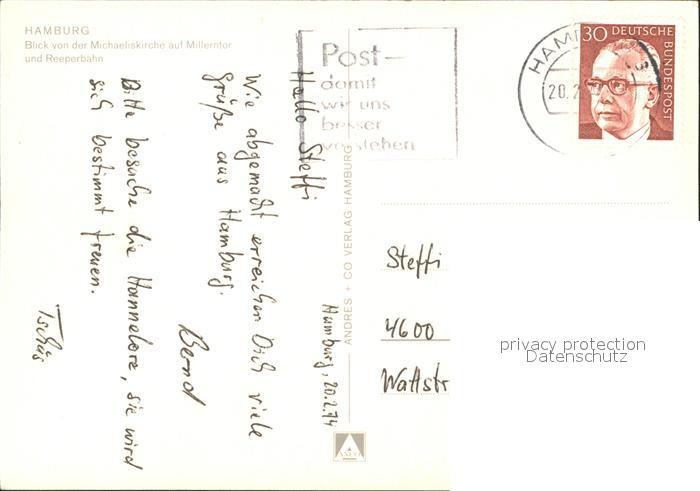 HAMBURG
Blick von der Michaeliskirche auf Millerntor
und Reeperbahn
Post-
damit
wir uns
besser
verstehen
HAM
20.2
30 DEUTSCHE
BUNDESPOST
Hamburg, 20.2.74
Hallo Steffi
Wie abgemacht erreichen Dich viele
Grüße aus Hamburg.
Bernd
Bitte besuche die Hannelore, sie wird
sich bestimmt freuen.
Tschüs
ANDRES + CO VERLAG HAMBURG
ANCO
Steffi
4600
Wattstr
privacy protection
Datenschutz